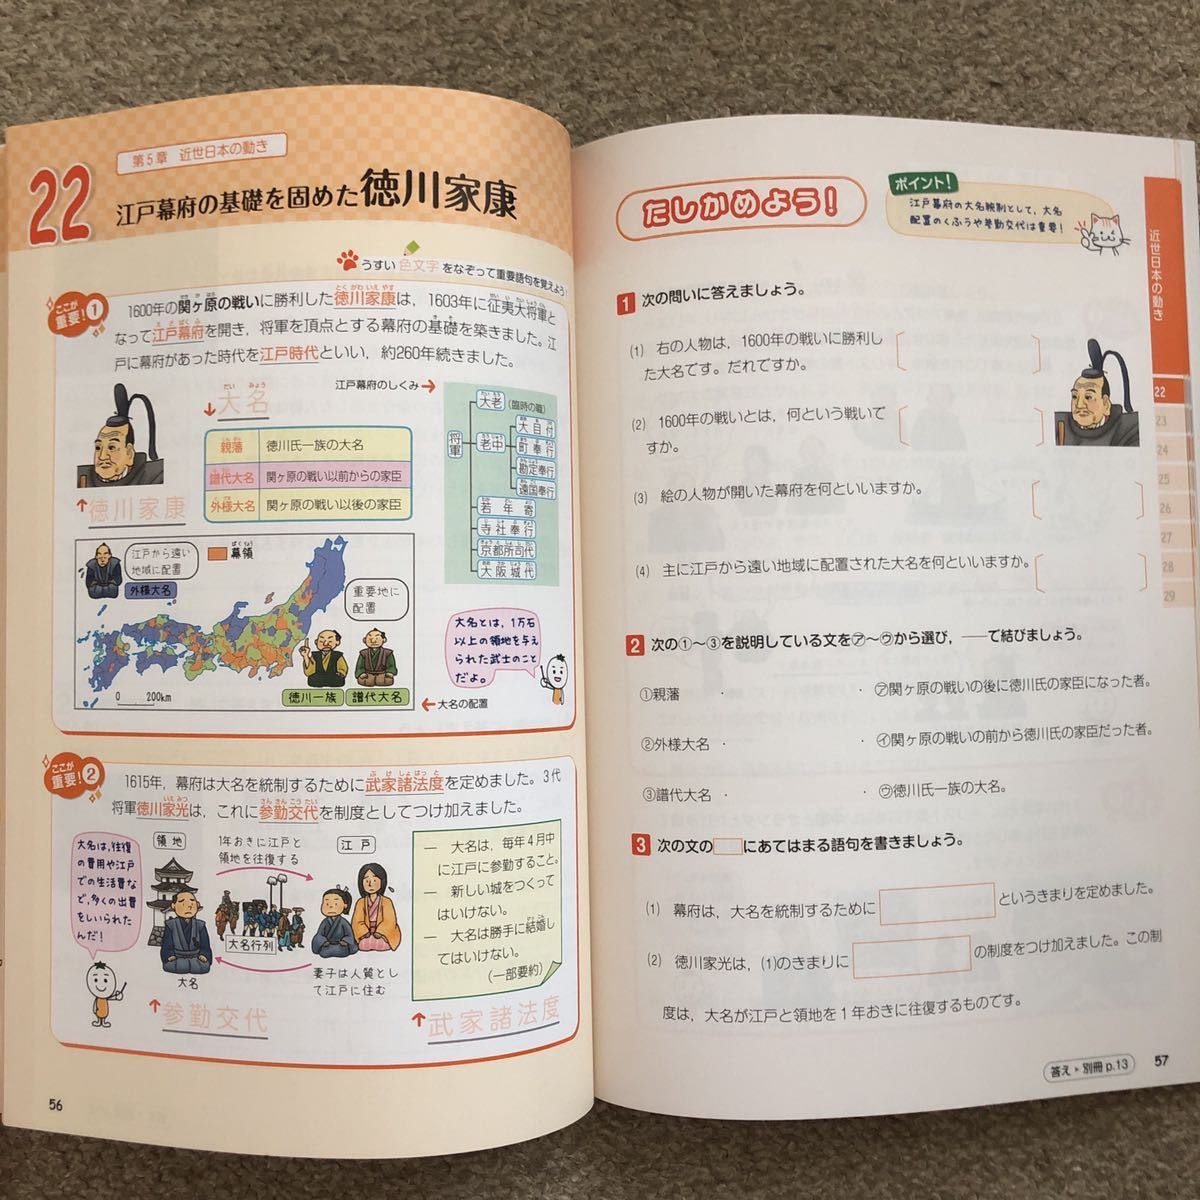 第5章 近世日本の動き
22
江戸幕府の基礎を固めた徳川家康
うすい色文字をなぞって重要語句を覚えよう!
ここが重要!①
1600年の関ヶ原の戦いに勝利した徳川家康は,1603年に征夷大将軍と
なって江戸幕府を開き,将軍を頂点とする幕府の基礎を築きました。江
戸に幕府があった時代を江戸時代といい,約260年続きました。
↑徳川家康
↓大名
親藩 徳川氏一族の大名
譜代大名 関ヶ原の戦い以前からの家臣
外様大名 関ヶ原の戦い以後の家臣
江戸幕府のしくみ→
将軍
大老(臨時の職)
老中
大目付
町奉行
勘定奉行
遠国奉行
若年寄
寺社奉行
京都所司代
大阪城代
江戸から遠い
地域に配置
外様大名
幕領
重要地に
配置
徳川一族
譜代大名
0 200km
←大名の配置
大名とは,1万石
以上の領地を与え
られた武士のこと
だよ。
ここが重要!②
1615年,幕府は大名を統制するために武家諸法度を定めました。3代
将軍徳川家光は,これに参勤交代を制度としてつけ加えました。
大名は,往復
の費用や江戸
での生活費な
ど,多くの出費
をしいられた
んだ!
領地
大名
1年おきに江戸と
領地を往復する
江戸
大名行列
妻子は人質とし
て江戸に住む
↑参勤交代
一 大名は,毎年4月中
に江戸に参勤すること。
一 新しい城をつくって
はいけない。
一 大名は勝手に結婚し
てはいけない。
(一部要約)
↑武家諸法度
56
たしかめよう!
ポイント!
江戸幕府の大名統制として,大名
配置のくふうや参勤交代は重要!
1 次の問いに答えましょう。
(1) 右の人物は,1600年の戦いに勝利し
た大名です。だれですか。
(2) 1600年の戦いとは,何という戦いで
すか。
(3) 絵の人物が開いた幕府を何といいますか。
(4) 主に江戸から遠い地域に配置された大名を何といいますか。
2 次の①~③を説明している文を㋐~㋒から選び,──で結びましょう。
①親藩 ・ ・ ㋐関ヶ原の戦いの後に徳川氏の家臣になった者。
②外様大名 ・ ・ ㋑関ヶ原の戦いの前から徳川氏の家臣だった者。
③譜代大名 ・ ・ ㋒徳川氏一族の大名。
3 次の文の にあてはまる語句を書きましょう。
(1) 幕府は,大名を統制するために というきまりを定めました。
(2) 徳川家光は,(1)のきまりに の制度をつけ加えました。この制
度は,大名が江戸と領地を1年おきに往復するものです。
答え▶別冊p.13
57
近世日本の動き
22
23
24
25
26
27
28
29